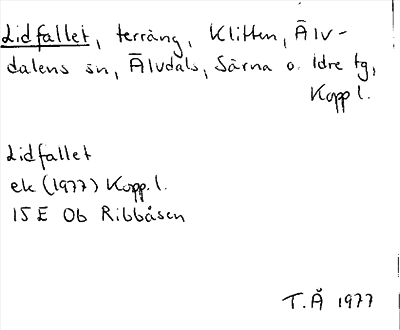 Lidfallet, terräng, Klitten, Älv-
dalens sn, Älvdals, Särna o. Idre tg,
Kopp l.
Lidfallet
ek (1977) Kopp. l.
15 E 0b Ribbåsen
T. Å 1977